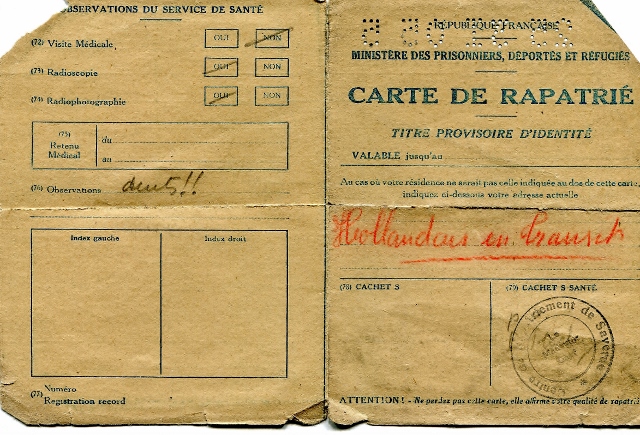 OBSERVATIONS DU SERVICE DE SANTÉ
(72) Visite Médicale, OUI NON
(73) Radioscopie OUI NON
(74) Radiophotographie OUI NON
(75) Retenu Médical
du
au
(76) Observations dents!!
Index gauche
Index droit
(77) Numéro
Registration record
RÉPUBLIQUE FRANÇAISE
MINISTÈRE DES PRISONNIERS, DÉPORTÉS ET RÉFUGIÉS
CARTE DE RAPATRIÉ
TITRE PROVISOIRE D'IDENTITÉ
VALABLE jusqu'au
Au cas où votre résidence ne serait pas celle indiquée au dos de cette carte,
indiquez ci-dessous votre adresse actuelle
Hollandais en transit
(78) CACHET S
(79) CACHET S SANTÉ
de Saverne
ATTENTION! - Ne perdez pas cette carte, elle affirme votre qualité de rapatrié